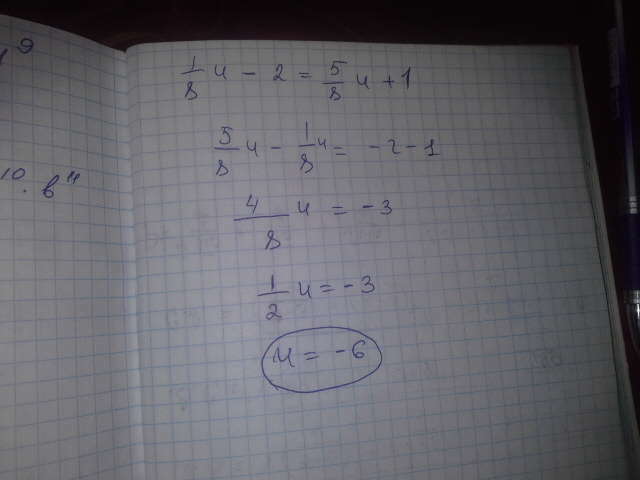 9
10. в"
1/8 u - 2 = 5/8 u + 1
5/8 u - 1/8 u = -2-1
4/8 u = -3
1/2 u = -3
u = -6